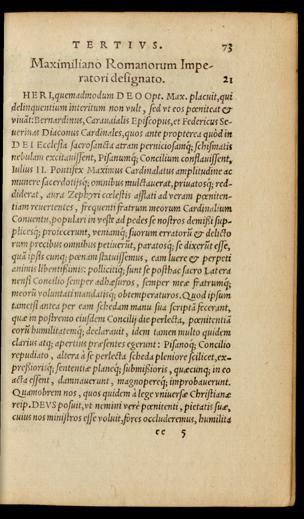 TERTIVS. 73
Maximiliano Romanorum Impe-
ratori designato. 21
HERI, quemadmodum DEO Opt. Max. placuit, qui
delinquentium interitum non vult, sed vt eos pœniteat &
viuāt: Bernardinus, Carauaialis Episcopus, et Federicus Se-
uerinas Diaconus Cardinales, quos ante propterea quòd in
DEI Ecclesia sacrosancta atram perniciosamq; schismatis
nebulam excitauissent, Pisanumq; Concilium conflauissent,
Iulius II. Pontifex Maximus Cardinalatus amplitudine ac
munere sacerdotijsq; omnibus multauerat, priuatosq; red-
diderat, aura Zephyri cœlestis afflati ad veram pœniten-
tiam reuertentes, frequenti fratrum meorum Cardinalium
Conuentu, populari in veste ad pedes se nostros demissi sup-
plicesq; proiecerunt, veniamq; suorum erratorū & delicto
rum precibus omnibus petiuerūt, paratosq; se dixerūt esse,
quā ipsis cunq; pœnam statuissemus, eam luere & perpeti
animis libentissimis: pollicitiq; sunt se posthac sacro Latera
nensi Concilio semper adhæsuros, semper meæ fratrumq;
meorū voluntati mandatisq; obtemperaturos. Quod ipsum
tametsi antea per eam schedam manu sua scriptā fecerant,
quæ in postremo eiusdem Concilij die perlecta, pœnitentiā
eorū humilitatemq; declarauit, idem tamen multo quidem
clarius atq; apertius præsentes egerunt: Pisanoq; Concilio
repudiato, altera à se perlecta scheda pleniore scilicet, ex-
pressiorisq; sententiæ planeq; submissioris, quæcunq; in eo
acta essent, damnauerunt, magnopereq; improbauerunt.
Quamobrem nos, quos quidem à lege vniuersæ Christianæ
reip. DEVS posuit, vt nemini verè pœnitenti, pietatis suæ,
cuius nos ministros esse voluit, fores occluderemus, humilita
cc 5